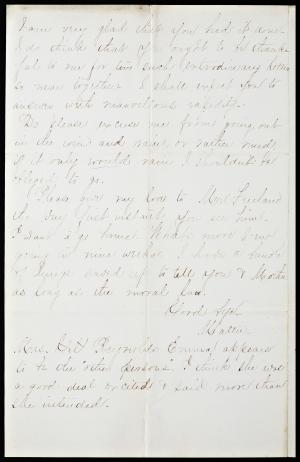 I am very glad that you had it done.
I do think that you ought to be thank-
ful to me for two such extraordinary letters
so near together. I shall expect you to
answer with marvellous rapidity.
Do please excuse me from going out
in the wind and rain or rather mud,
if it only would rain I shouldn't be
obliged to go.
Please give my love to Mrs. Freeland
the very first instant you see him.
I want to go home. What's more I'm
going in nine weeks. I have a bunch
of things saved up to tell you & Martha
as long as the moral law.
Good bye
Mattie
Mrs. Reynolds Emma appears
to be the other persons. I think she was
a good deal excited & said more than
she intended.